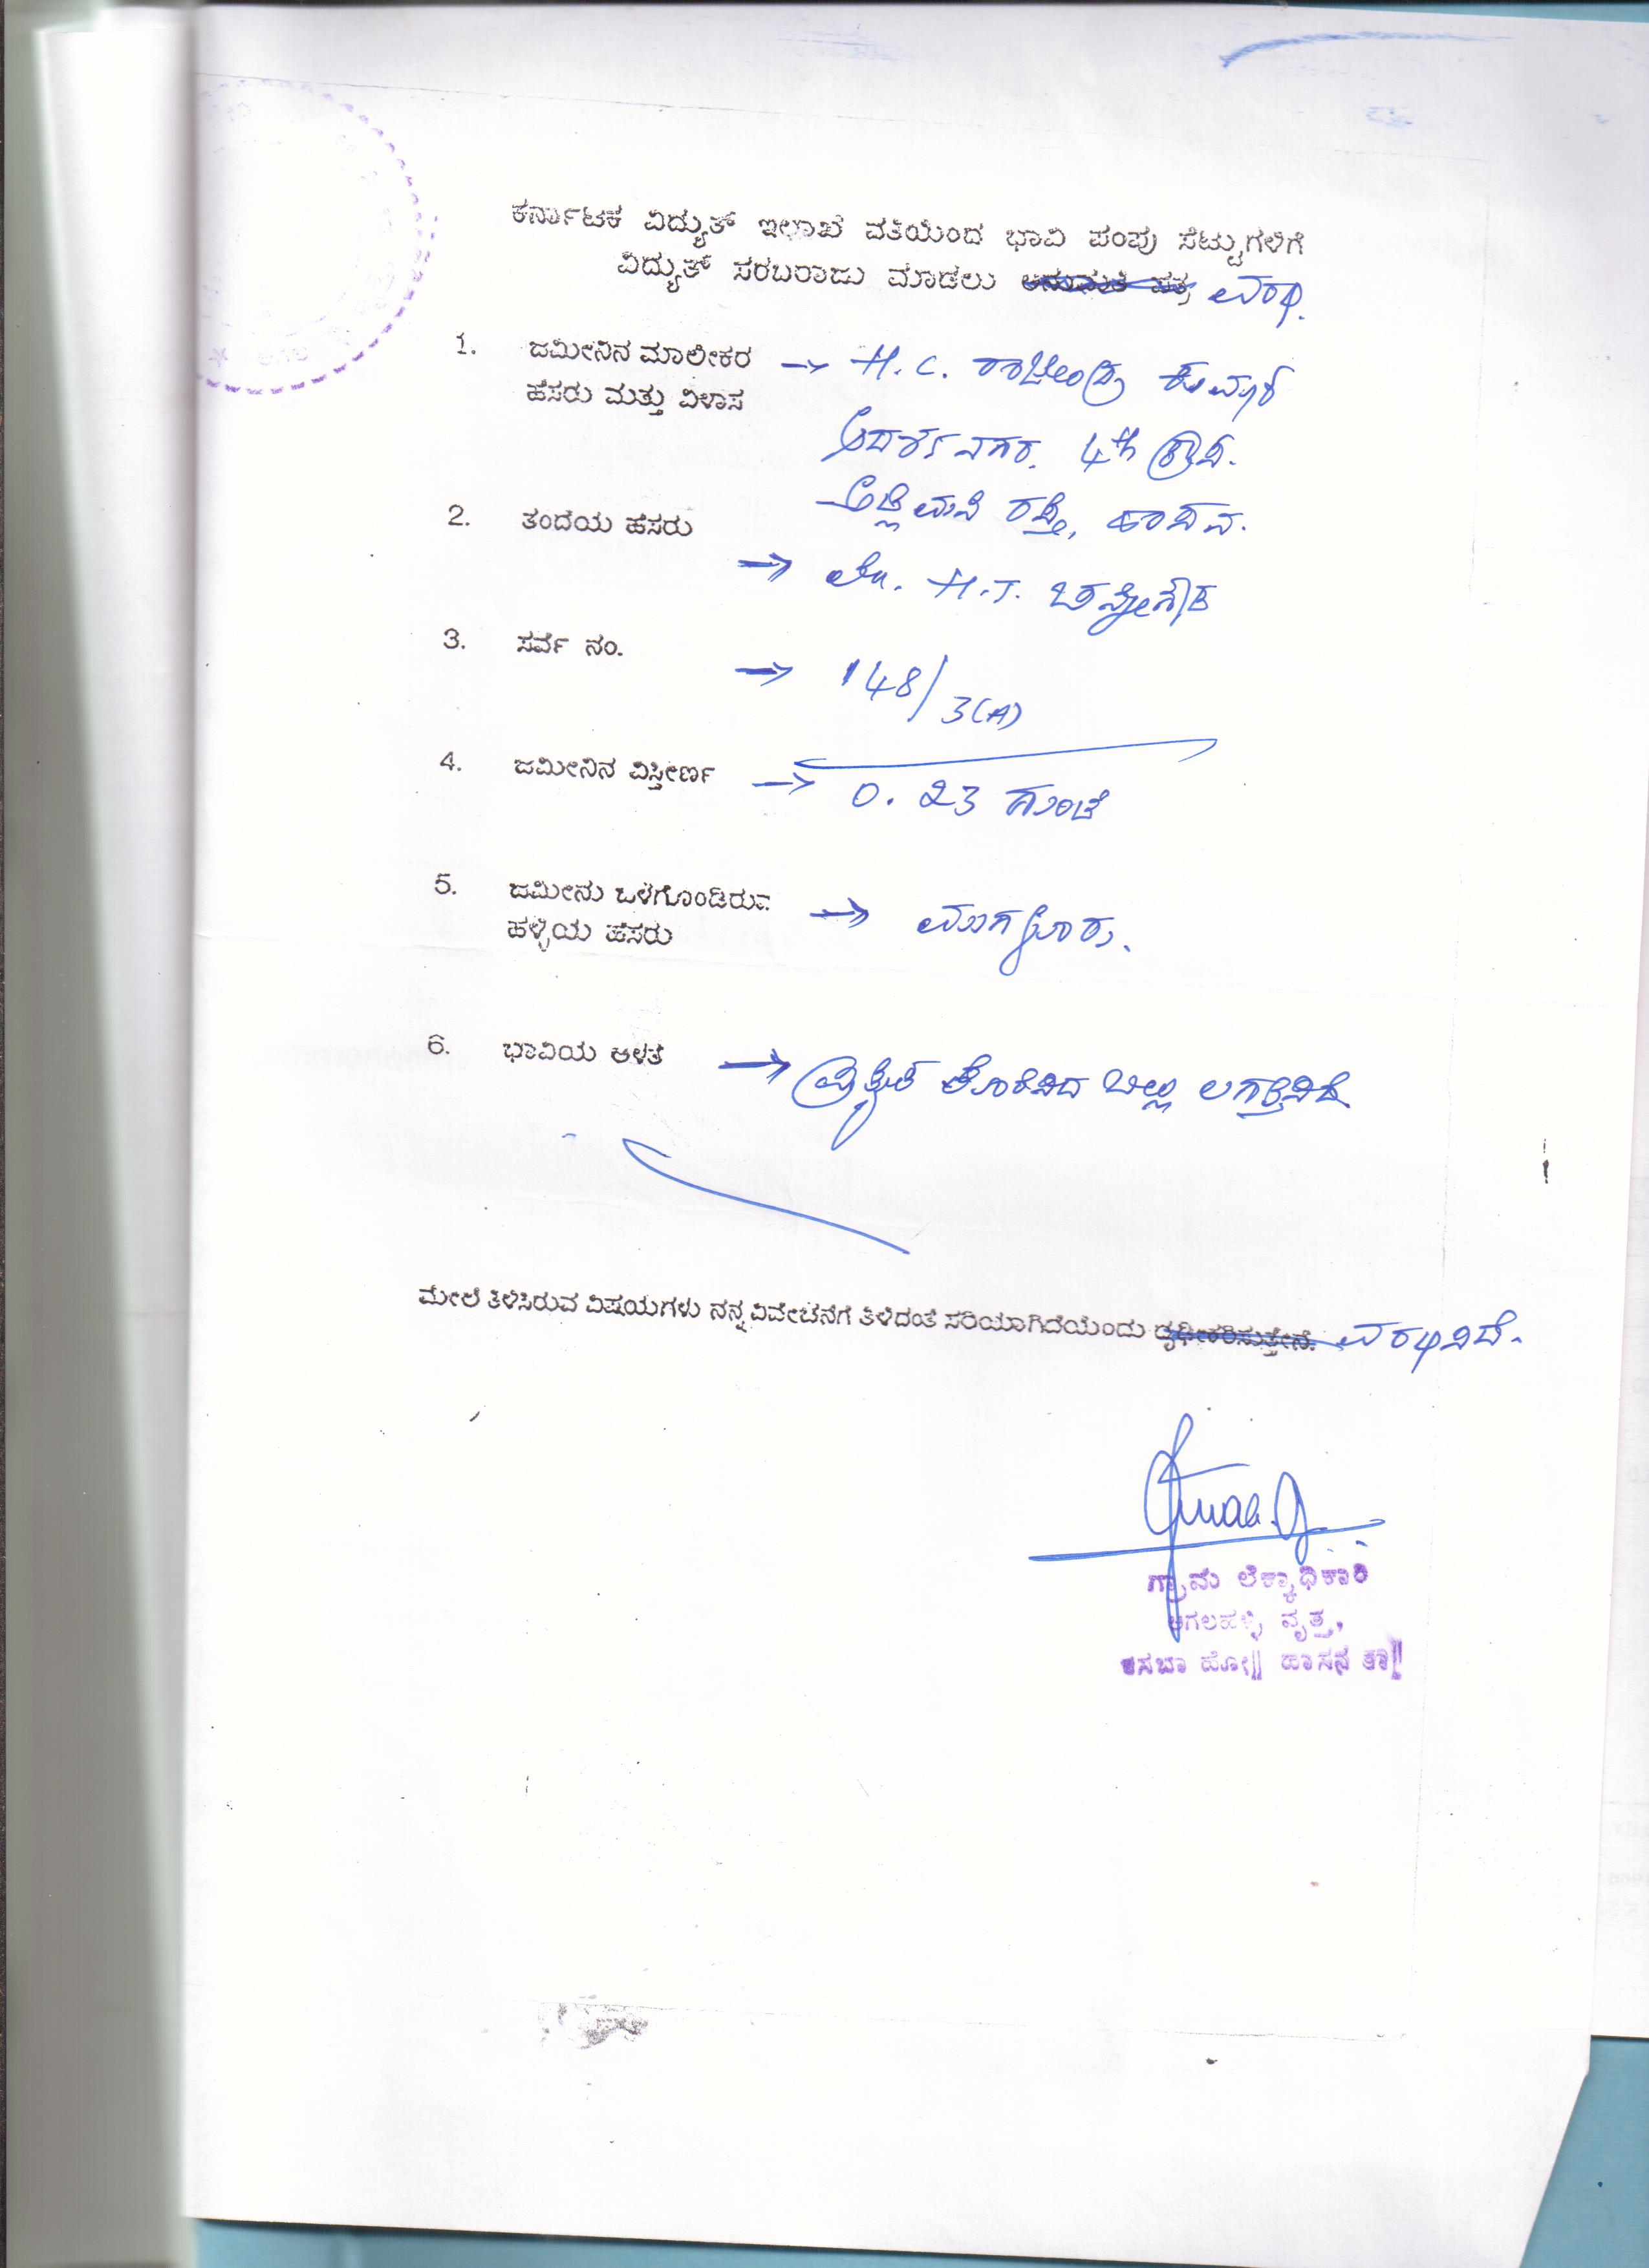 ಕರ್ನಾಟಕ ವಿದ್ಯುತ್ ಇಲಾಖೆ ವತಿಯಿಂದ ಭಾವಿ ಪಂಪು ಸೆಟ್ಟುಗಳಿಗೆ
ವಿದ್ಯುತ್ ಸರಬರಾಜು ಮಾಡಲು ಅನುಮತಿ ಪತ್ರ ವರದಿ.
1. ಜಮೀನಿನ ಮಾಲೀಕರ → H.C. ರಾಜೇಂದ್ರ ಕುಮಾರ್
ಹೆಸರು ಮತ್ತು ವಿಳಾಸ
ಆದರ್ಶನಗರ. 4th ಕ್ರಾಸ್.
ರಸ್ತೆ, ಹಾಸನ.
2. ತಂದೆಯ ಹೆಸರು
→ ಲೇ. H.T. ಚನ್ನೇಗೌಡ
3. ಸರ್ವೆ ನಂ.
→ 148/3(A)
4. ಜಮೀನಿನ ವಿಸ್ತೀರ್ಣ → 0.23 ಗುಂಟೆ
5. ಜಮೀನು ಒಳಗೊಂಡಿರುವ → ಮುಗಳೂರು.
ಹಳ್ಳಿಯ ಹೆಸರು
6. ಭಾವಿಯ ಅಳತೆ →
ಮೇಲೆ ತಿಳಿಸಿರುವ ವಿಷಯಗಳು ನನ್ನ ವಿವೇಚನೆಗೆ ತಿಳಿದಂತೆ ಸರಿಯಾಗಿದೆಯೆಂದು ದೃಢೀಕರಿಸುತ್ತೇನೆ. ವರದಿಸಿದೆ.
ಗ್ರಾಮ ಲೆಕ್ಕಾಧಿಕಾರಿ
ಅಗಲಹಳ್ಳಿ ವೃತ್ತ,
ಕಸಬಾ ಹೋ|| ಹಾಸನ ತಾ||